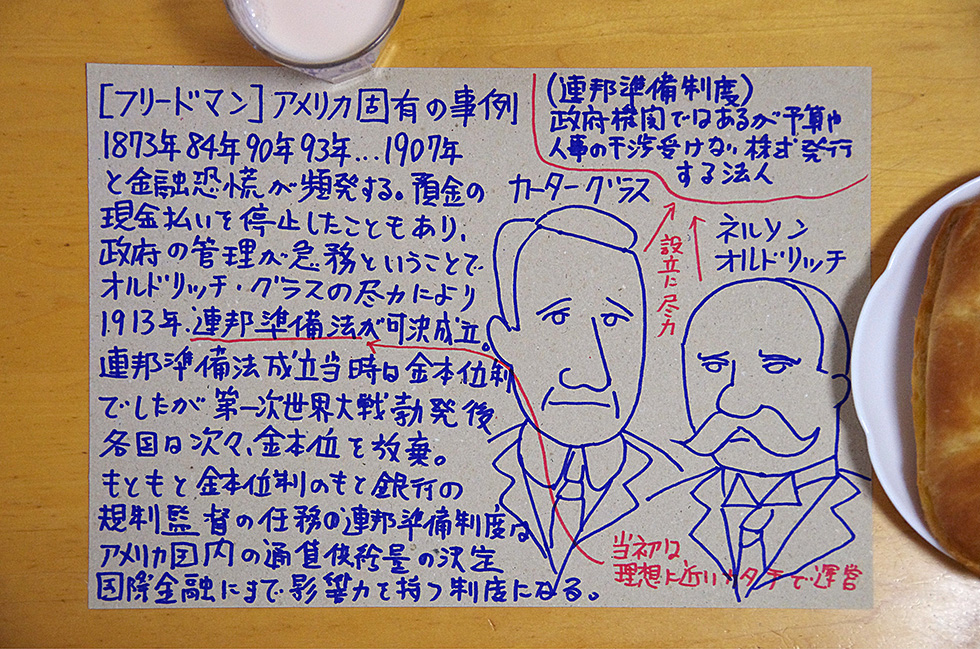 [フリードマン] アメリカ固有の事例
1873年84年90年93年…1907年
と金融恐慌が頻発する。預金の
現金払いを停止したこともあり、
政府の管理が急務ということで
オルドリッチ・グラスの尽力により
1913年.連邦準備法が可決成立。
連邦準備法成立当時は金本位制
でしたが第一次世界大戦勃発後
各国は次々、金本位を放棄。
もともと金本位制のもと銀行の
規制監督の任務の連邦準備制度は
アメリカ国内の通貨供給量の決定
国際金融にまで影響力を持つ制度になる。
(連邦準備制度)
政府機関ではあるが予算や
人事の干渉受けない株式発行
する法人
カーターグラス
ネルソン
オルドリッチ
設立に尽力
当初は
理想に近いカタチで運営